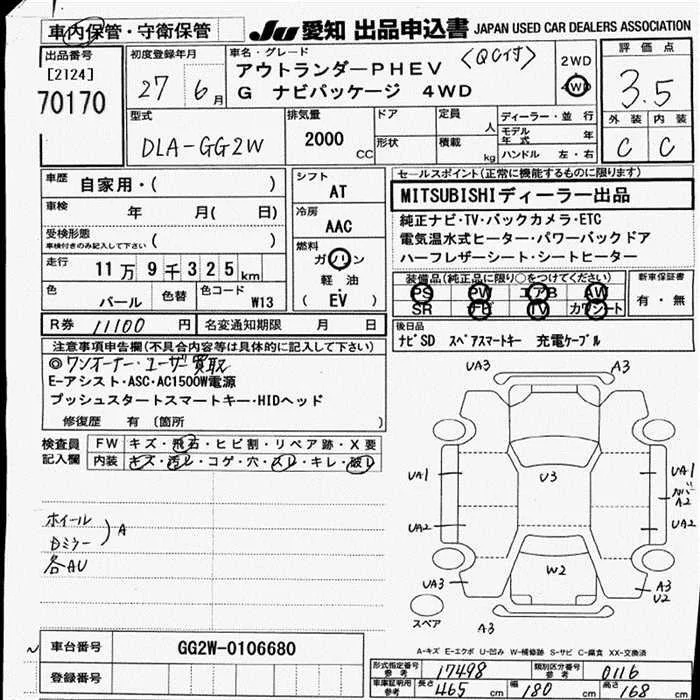 車内保管・守衛保管
Ju 愛知 出品申込書 JAPAN USED CAR DEALERS ASSOCIATION
出品番号
[2124]
70170
初度登録年月
27 6月
車名・グレード
アウトランダーPHEV <QC付>
G ナビパッケージ 4WD
2WD
4WD
評価点
3.5
外装 内装
C C
型式
DLA-GG2W
排気量
2000 CC
ドア
形状
定員 人
積載 kg
ディーラー・並行
モデル年式 年
ハンドル 左・右
車歴 自家用・( )
車検 年 月( 日)
受検形態
車検付きのみ記入して下さい ( )
走行 11万9千325km
色 パール
色替
色コード W13
シフト
AT
冷房
AAC
燃料
ガソリン
軽油
(EV)
セールスポイント(正常に機能するものに限ります)
MITSUBISHIディーラー出品
純正ナビ・TV・バックカメラ・ETC
電気温水式ヒーター・パワーバックドア
ハーフレザーシート・シートヒーター
装備品(純正品に限り○をつけてください)
PS PW エアB AW
SR ナビ TV カワシート
新車保証書
有・無
R券 11100 円 名変通知期限 月 日
後日品
ナビSD スペアスマートキー 充電ケーブル
注意事項申告欄(不具合内容等は具体的に記入して下さい)
◎ワンオーナー・ユーザー買取
E-アシスト・ASC・AC1500W電源
プッシュスタートスマートキー・HIDヘッド
修復歴 有 〔箇所 〕
検査員記入欄
FW キズ・飛石・ヒビ割・リペア跡・X要
内装 キズ・汚レ・コゲ・穴・スレ・キレ・破レ
ホイール
Dミラー ) A
各AU
UA3 A3
UA1 U3 UA1
カバー
A2
UA2 UA2
W2
UA3 A3
U2
スペア
A3
A-キズ E-エクボ U-凹み W-補修跡 S-サビ C-腐食 XX-交換済
車台番号 GG2W-0106680
登録番号
型式指定番号 参考 17498 類別区分番号 参考 0116
車庫証明用 参考 長さ 465 cm 幅 180 cm 高さ 168 cm